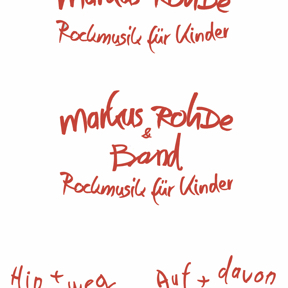 Markus RohDe
Rockmusik für Kinder
Markus RohDe
&
Band
Rockmusik für Kinder
Hin + weg
Auf + davon